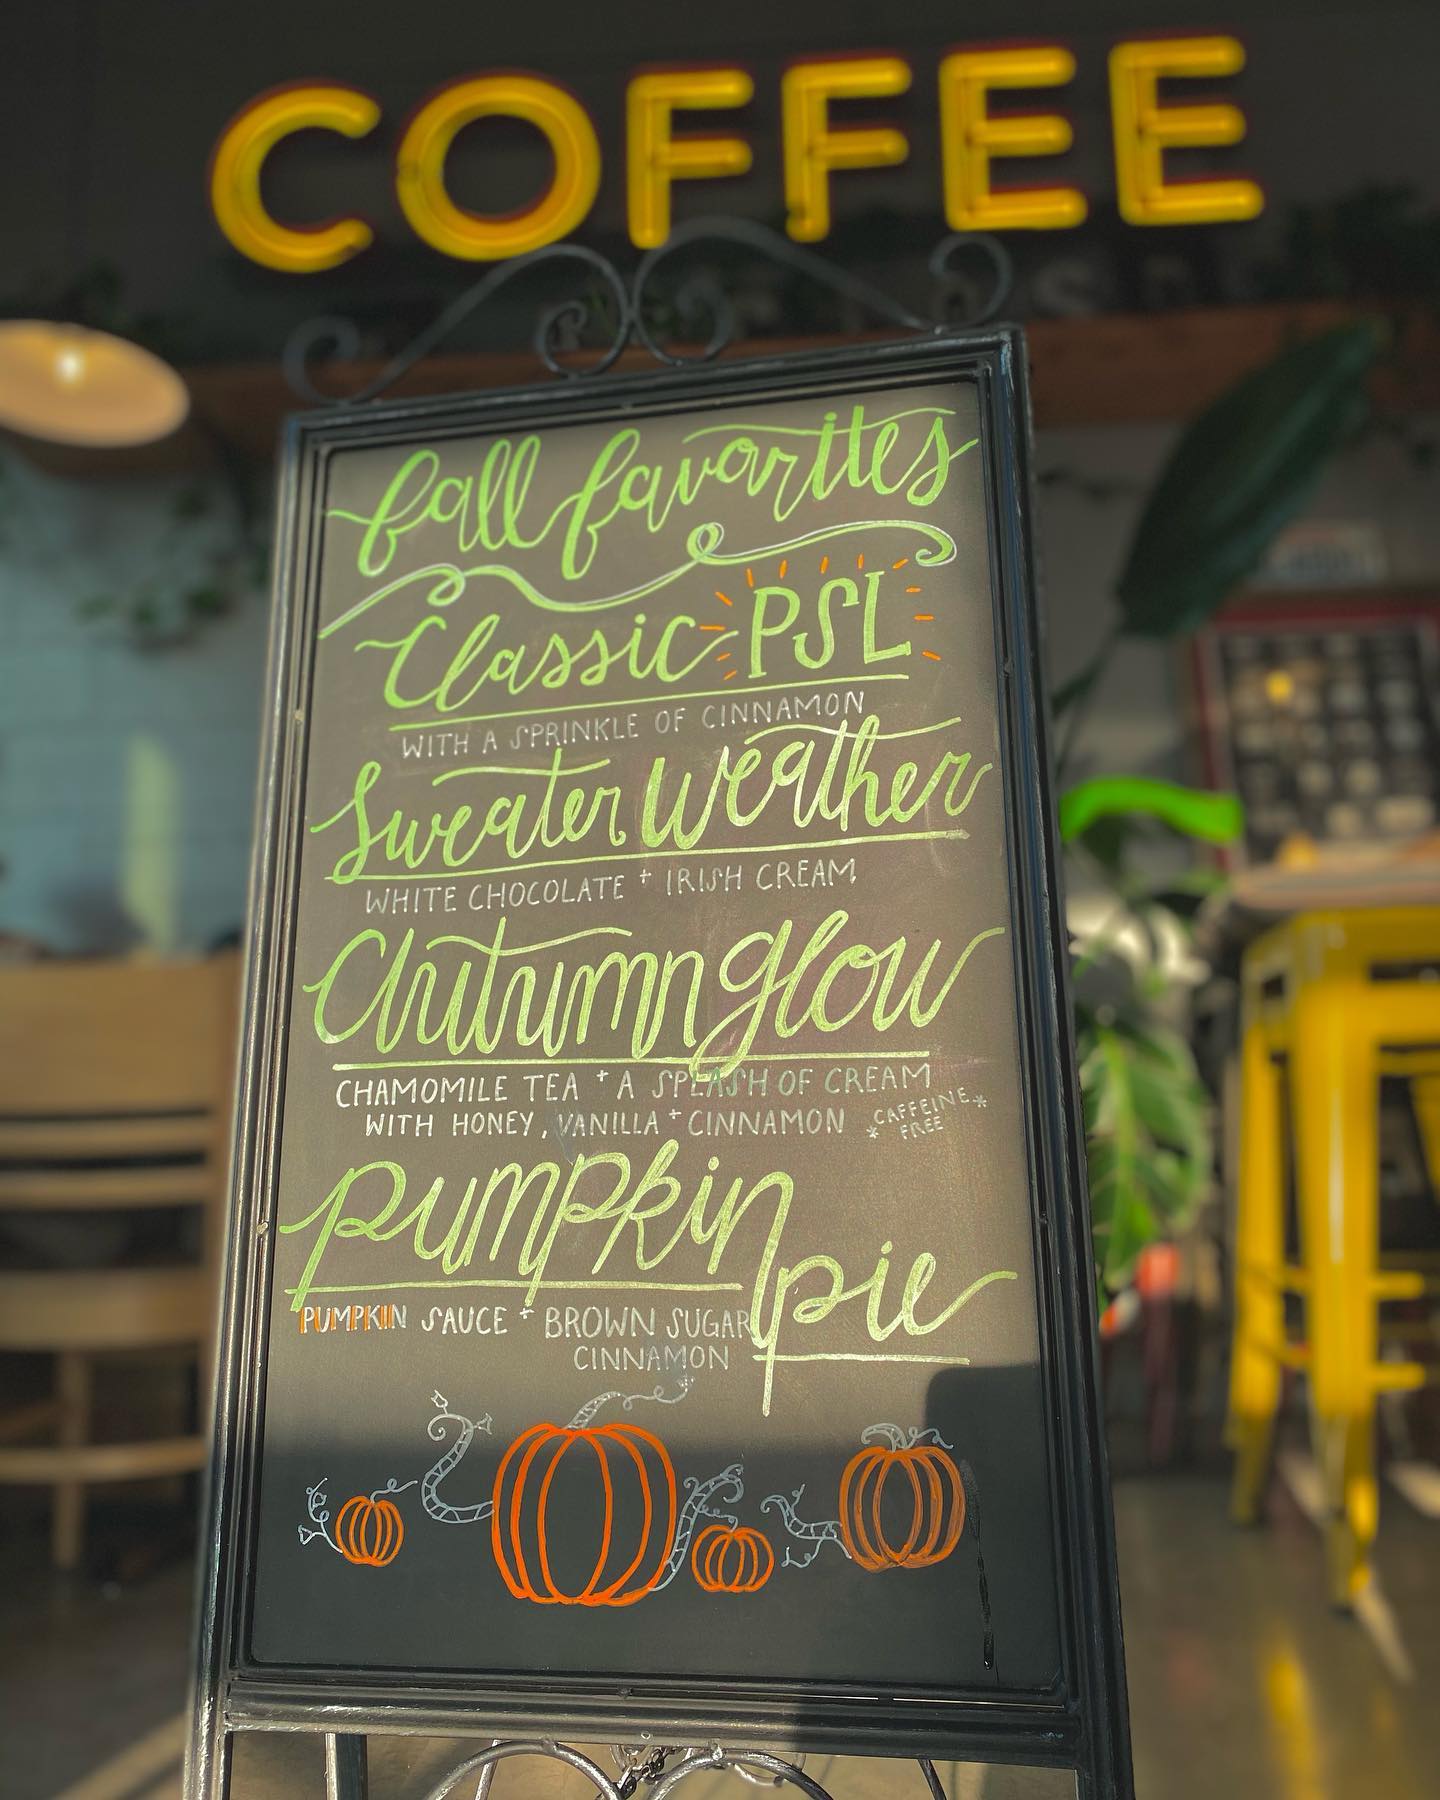 COFFEE
fall favorites
Classic PSL
WITH A SPRINKLE OF CINNAMON
Sweater weather
WHITE CHOCOLATE + IRISH CREAM
Autumn glow
CHAMOMILE TEA + A SPLASH OF CREAM
WITH HONEY, VANILLA + CINNAMON *CAFFEINE FREE*
pumpkin pie
PUMPKIN SAUCE + BROWN SUGAR
CINNAMON